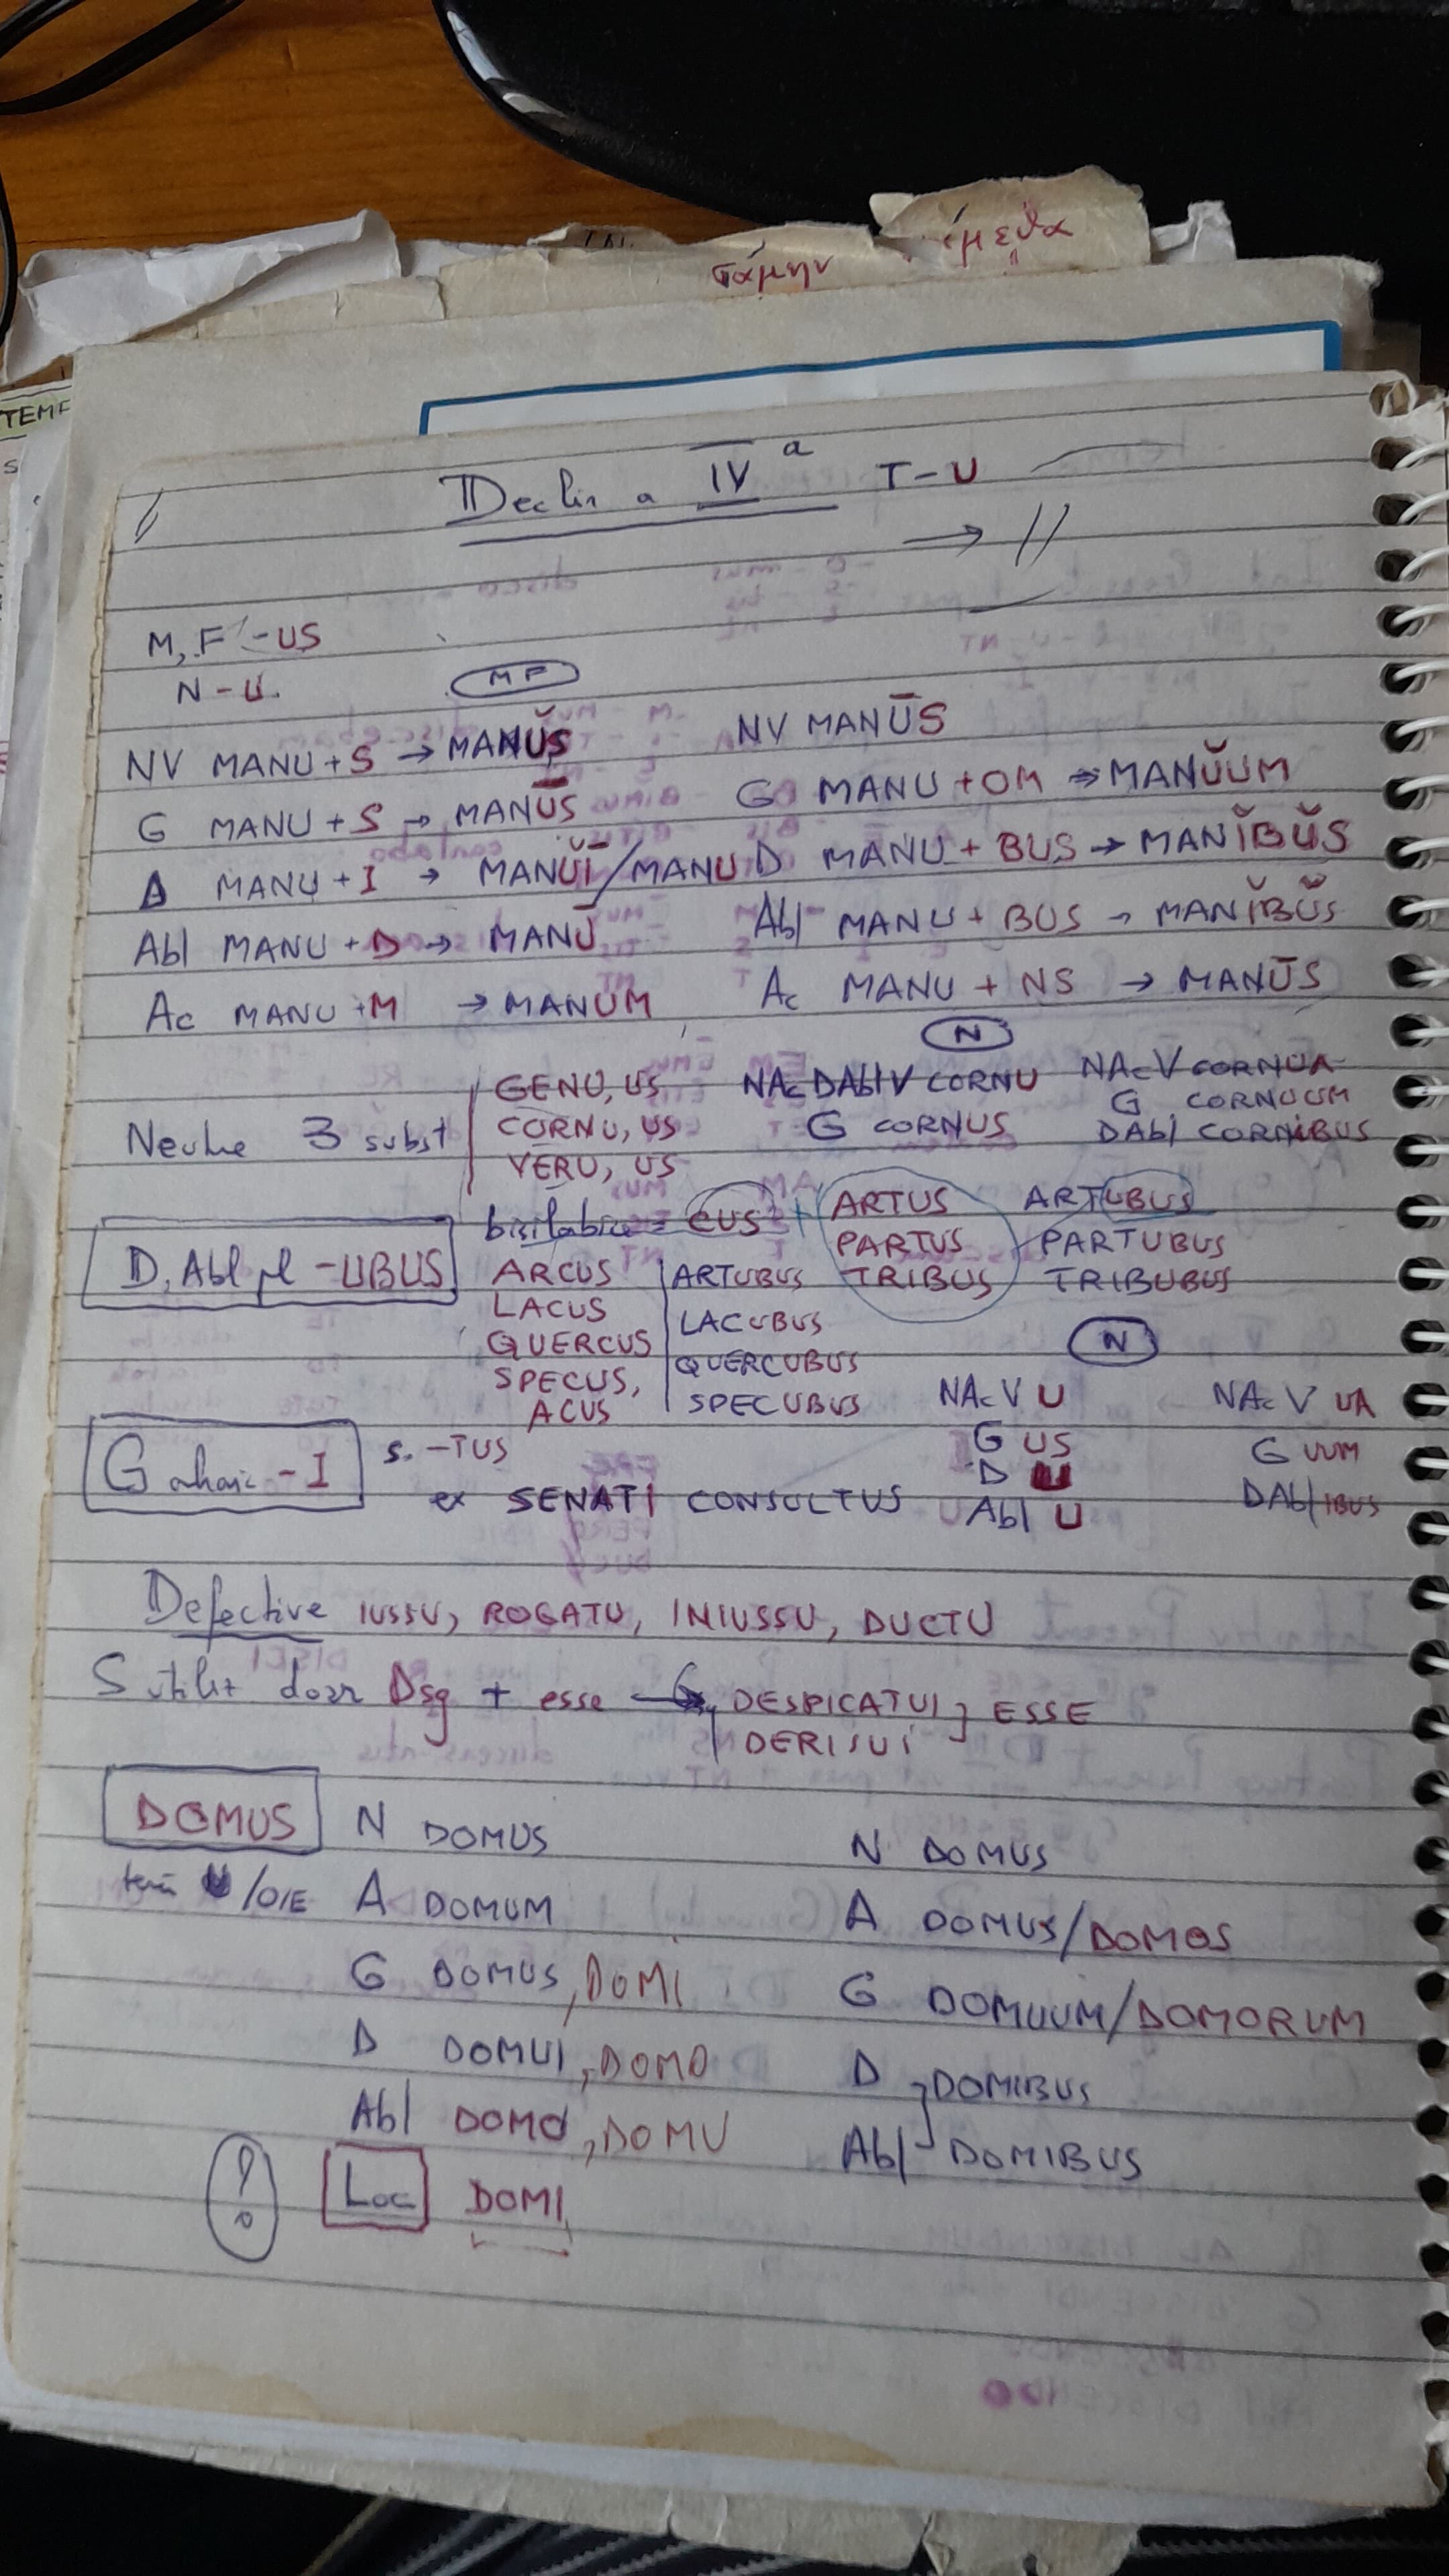 τάμην
έμεθα
TEMF
Declin a IVª T-U
→ //
M, F -US
N -U.
MF
NV MANU + S → MANŬS NV MANŪS
G MANU + S → MANŪS G MANU + OM → MANŬUM
D MANU + I → MANŬĪ / MANU D MANU + BUS → MANĬBŬS
Abl MANU + D → MANŪ Abl MANU + BUS → MANĬBŬS
Ac MANU + M → MANUM Ac MANU + NS → MANŪS
N
GENU, US NAcDAblV CORNU NAcV CORNUA
Neutre 3 subst CORNU, US G CORNUS G CORNUUM
VERU, US DAbl CORNIBUS
D, Abl pl -UBUS bisilabice = CUS + ARTUS ARTUBUS
PARTUS PARTUBUS
ARCUS ARTUBUS TRIBUS TRIBUBUS
LACUS LACUBUS
QUERCUS QUERCUBUS N
SPECUS, SPECUBUS NAcV U NAcV UA
ACUS
G arhaic -I s. -TUS G US G UUM
D U
ex SENATI CONSULTUS Abl U DAbl IBUS
Defective IUSSU, ROGATU, INIUSSU, DUCTU
S utiliz doar Dsg + esse → DESPICATUI ESSE
DERISUI
DOMUS N DOMUS N DOMUS
tem U/O/E A DOMUM A DOMUS/DOMOS
G DOMUS, DOMI G DOMUUM/DOMORUM
D DOMUI, DOMO D DOMIBUS
Abl DOMO, DOMU Abl DOMIBUS
! Loc DOMI